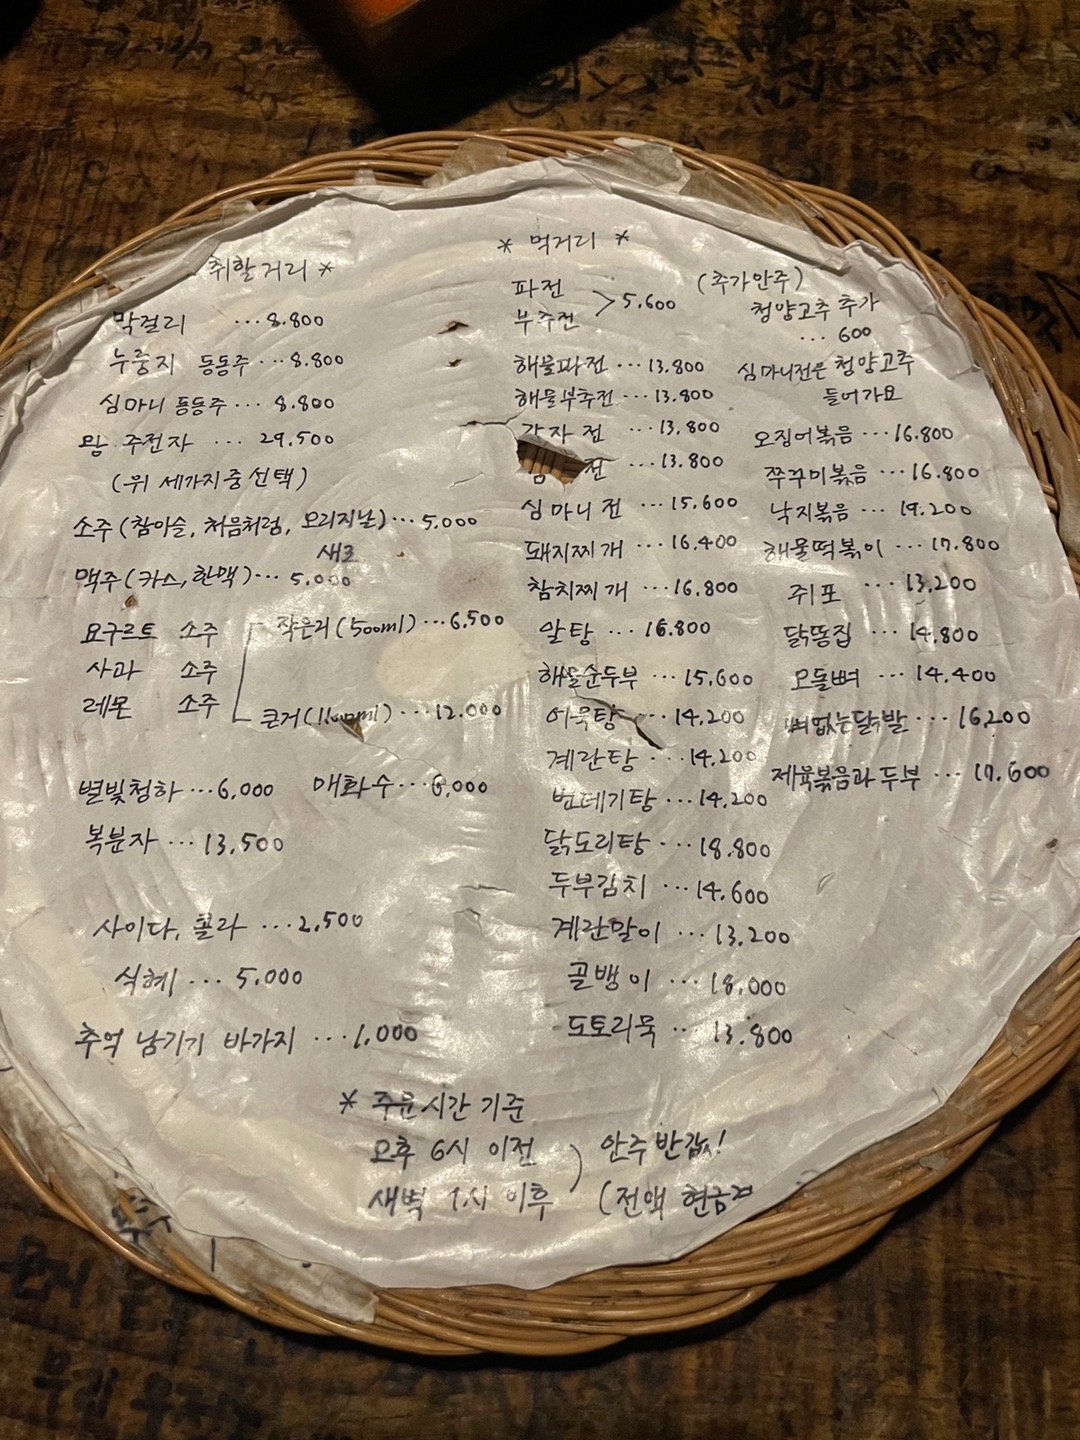 취할거리 *
막걸리 ... 8.800
누룽지 동동주 ... 8.800
심마니 동동주 ... 8.800
왕 주전자 ... 29.500
(위 세가지중 선택)
소주 (참이슬, 처음처럼, 오리지날) ... 5.000
새로
맥주 (카스, 한맥) ... 5.000
요구르트 소주
사과 소주
레몬 소주
작은거 (500ml) ... 6.500
큰거 ... 12.000
별빛청하 ... 6.000
매화수 ... 6.000
복분자 ... 13.500
사이다, 콜라 ... 2.500
식혜 ... 5.000
추억 남기기 바가지 ... 1.000
* 먹거리 *
파전
부추전
> 5.600
해물파전 ... 13.800
해물부추전 ... 13.800
감자전 ... 13.800
전 ... 13.800
심마니전 ... 15.600
돼지찌개 ... 16.400
참치찌개 ... 16.800
알탕 ... 16.800
해물순두부 ... 15.600
어묵탕 ... 14.200
계란탕 ... 14.200
번데기탕 ... 14.200
닭도리탕 ... 18.800
두부김치 ... 14.600
계란말이 ... 13.200
골뱅이 ... 18.000
도토리묵 .. 13.800
(추가안주)
청양고추 추가
... 600
심마니전은 청양고추
들어가요
오징어볶음 ... 16.800
쭈꾸미볶음 ... 16.800
낙지볶음 ... 19.200
해물떡볶이 ... 17.800
쥐포 ... 13.200
닭똥집 ... 14.800
오돌뼈 ... 14.400
뼈없는닭발 ... 16.200
제육볶음과 두부 ... 17.600
* 주문시간 기준
오후 6시 이전
새벽 1시 이후
안주 반값!
(전액 현금